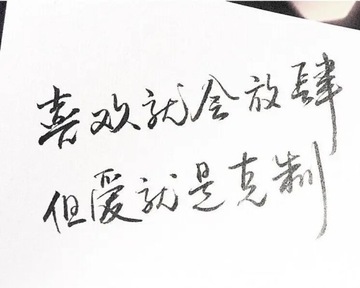 喜欢就会放肆
但爱就是克制